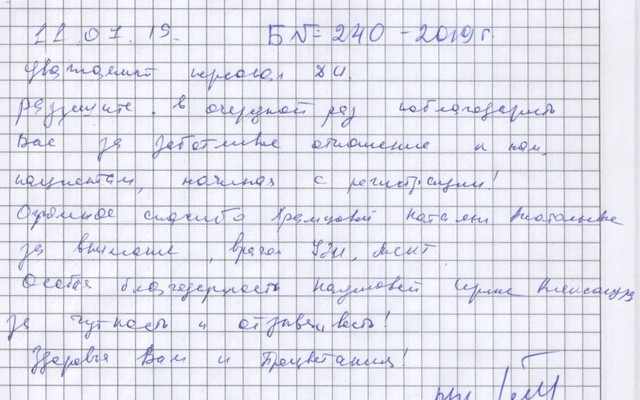 11.07.19. Б № 240 - 2019 г.
Уважаемый персонал ДЦ.
разрешите в очередной раз поблагодарить
Вас за заботливое отношение к нам,
пациентам, начиная с регистрации!
Огромное спасибо Храмцовой Наталье Анатольевне
за внимание, врачам УЗИ, МСКТ.
Особая благодарность Наумовой Ирине
за чуткость и отзывчивость!
Здоровья Вам и Процветания!